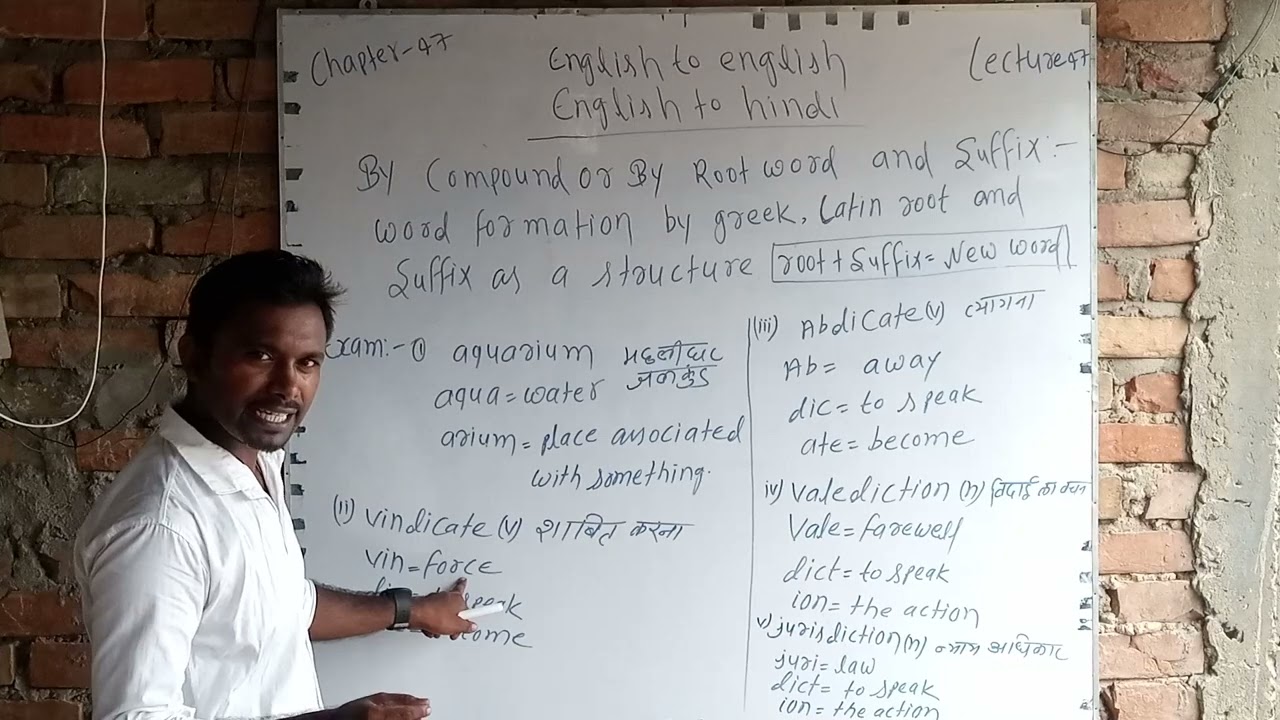 Chapter-47
English to english
Lecture 47
English to hindi
By Compound or By Root word and Suffix:-
word formation by greek, Latin root and
Suffix as a structure root + Suffix = New word
Exam:- (i) aquarium मछलीघर
जलकुंड
aqua = water
arium = place associated
with something.
(ii) vindicate (v) शाबित करना
vin = force
speak
(iii) Abdicate (v) त्यागना
Ab = away
dic = to speak
ate = become
iv) valediction (n) विदाई का वचन
Vale = farewell
dict = to speak
ion = the action
v) jurisdiction (n) न्याय अधिकार
juri = law
dict = to speak
ion = the action